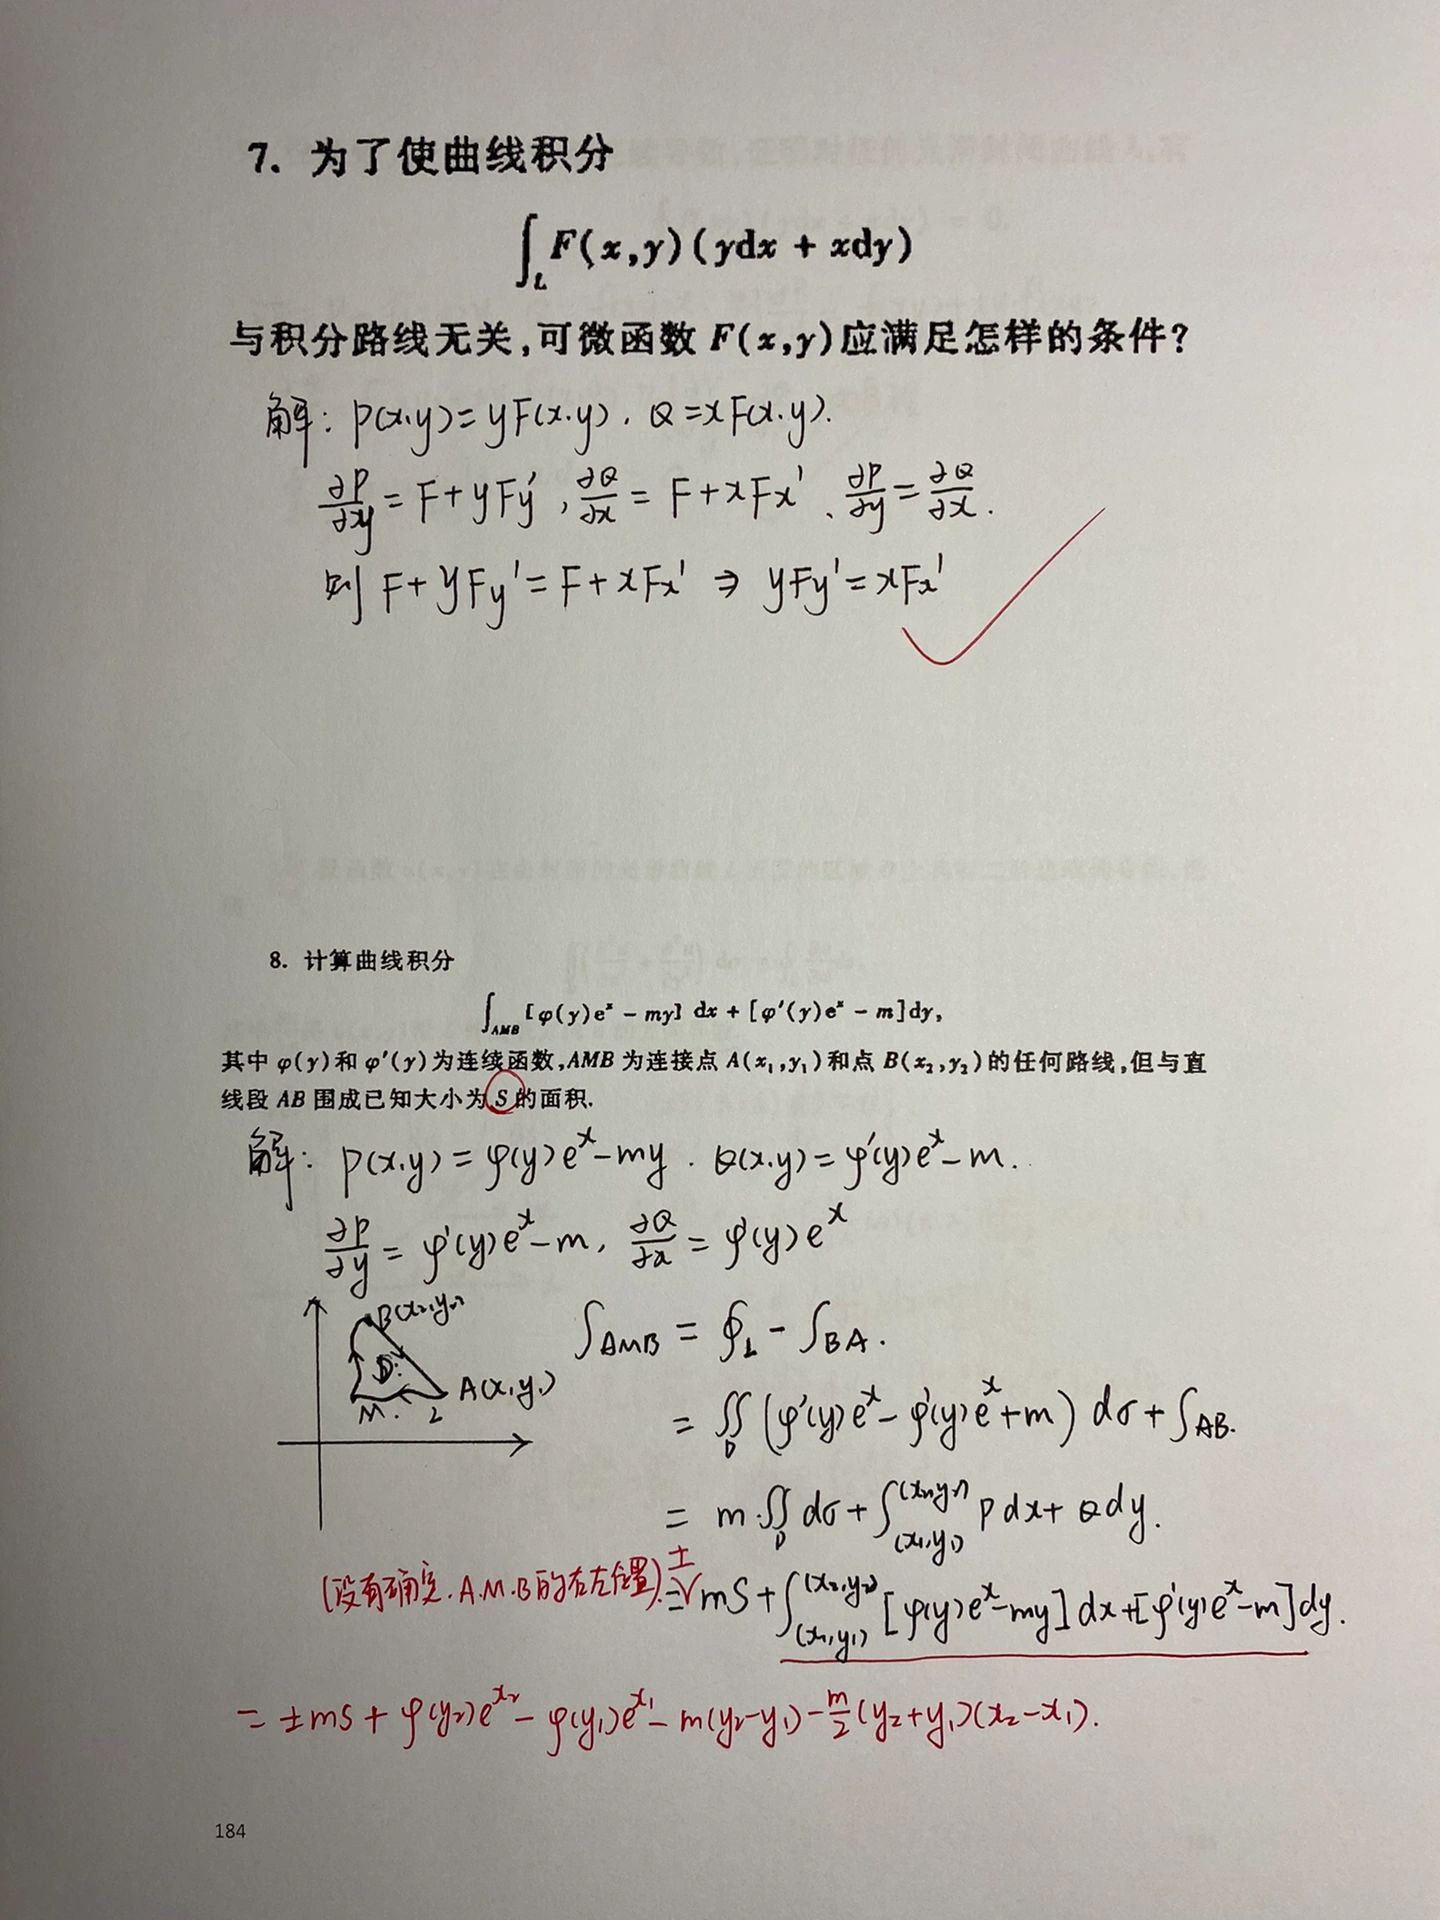 7. 为了使曲线积分
∫_L F(x,y)(ydx + xdy)
与积分路线无关,可微函数 F(x,y)应满足怎样的条件?
解: P(x,y)= yF(x,y), Q=xF(x,y).
∂P/∂y = F+yFy', ∂Q/∂x = F+xFx'. ∂P/∂y = ∂Q/∂x.
则 F+yFy'=F+xFx' ⇒ yFy'=xFx'
8. 计算曲线积分
∫_AMB [φ(y)e^x − my] dx + [φ'(y)e^x − m]dy,
其中 φ(y)和 φ'(y)为连续函数,AMB 为连接点 A(x₁,y₁)和点 B(x₂,y₂)的任何路线,但与直
线段 AB 围成已知大小为 S 的面积.
解: P(x,y)= φ(y)e^x−my. Q(x,y)= φ'(y)e^x−m.
∂P/∂y = φ'(y)e^x−m, ∂Q/∂x = φ'(y)e^x
B(x₂,y₂)
D
A(x₁,y₁)
M. L
∫_AMB = ∮_L − ∫_BA.
= ∬_D (φ'(y)e^x − φ'(y)e^x+m) dσ + ∫_AB.
= m·∬_D dσ + ∫_(x₁,y₁)^(x₂,y₂) Pdx+Qdy.
(没有确定.A.M.B的右左位置).
= ± mS + ∫_(x₁,y₁)^(x₂,y₂) [φ(y)e^x−my]dx+[φ'(y)e^x−m]dy.
= ±mS + φ(y₂)e^x₂ − φ(y₁)e^x₁ − m(y₂−y₁) − m/2 (y₂+y₁)(x₂−x₁).
184